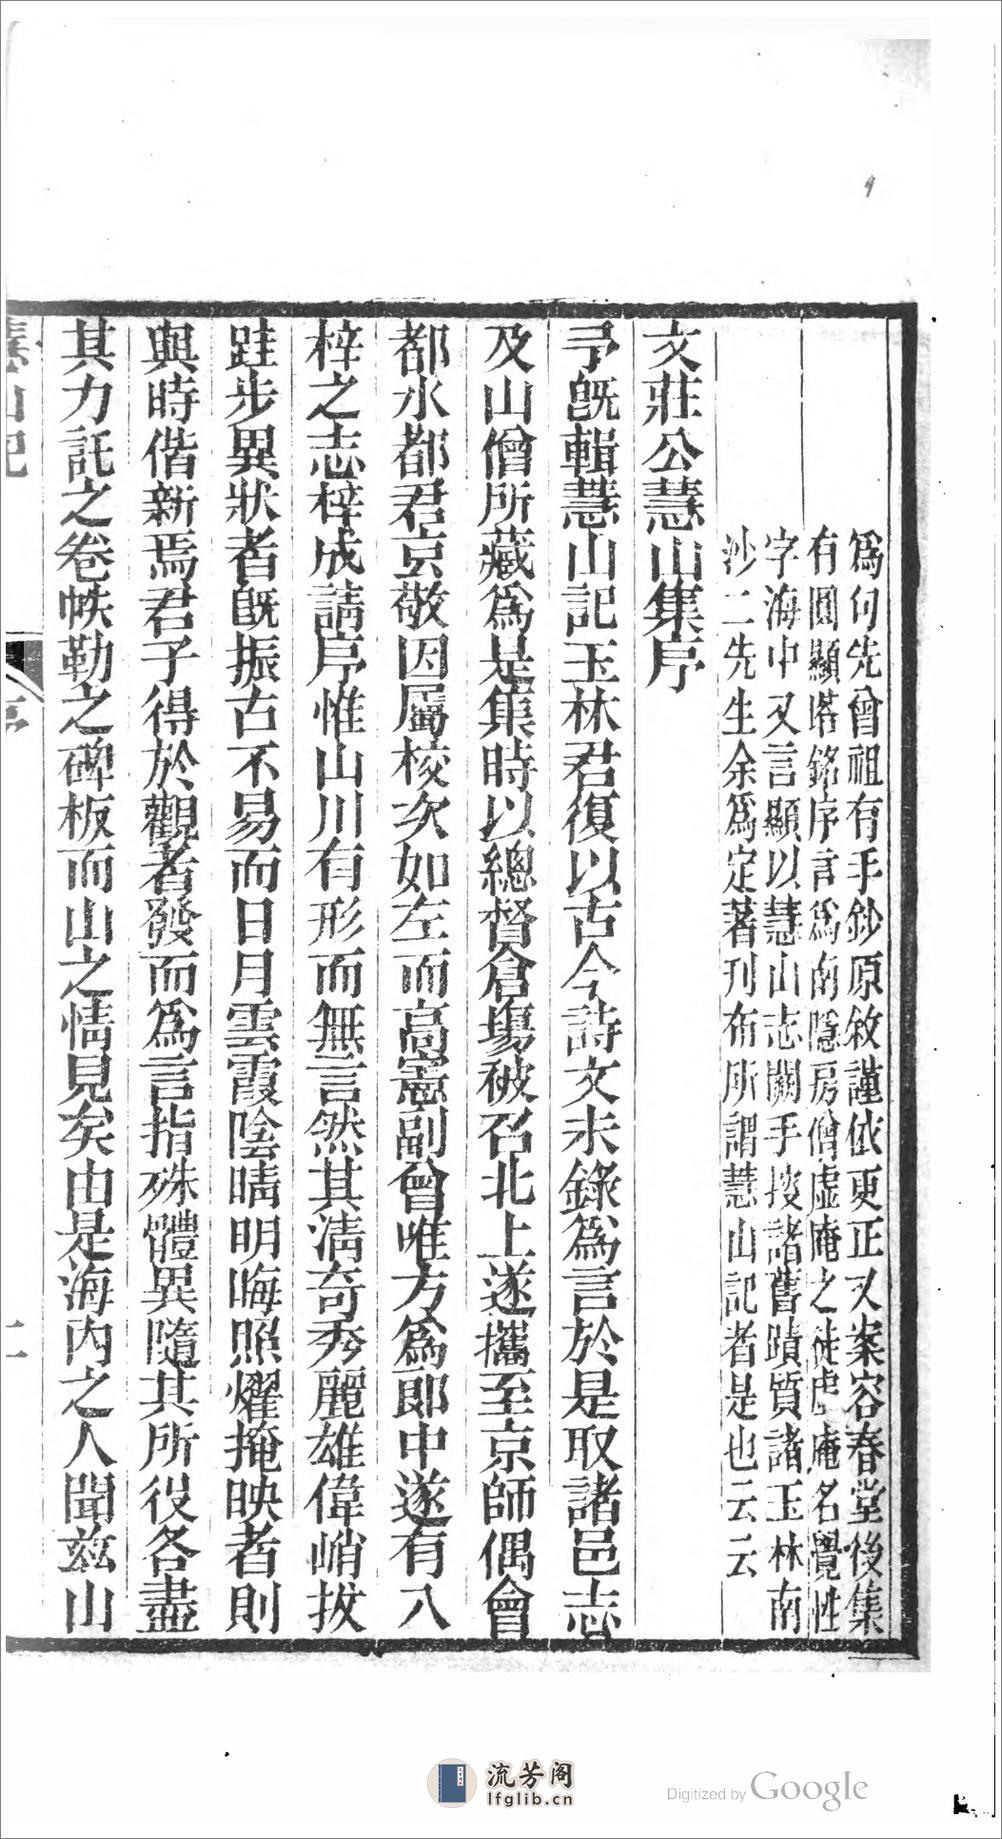 爲何先曾祖有手鈔原敘謹依更正又案容春堂後集
有圓顯塔銘序言爲南隱房僧虛庵之徒虛庵名覺性
字海中又言顯以慧山志闕手掞諸舊蹟質諸玉林南
沙二先生余爲定著刊布所謂慧山記者是也云云
文莊公慧山集序
予旣輯慧山記玉林君復以古今詩文未錄爲言於是取諸邑志
及山僧所藏爲是集時以總督倉場被召北上遂攜至京師偶會
都水都君京敬因屬校次如左而高憲副曾唯方爲郎中遂有入
梓之志梓成請序惟山川有形而無言然其淸奇秀麗雄偉峭拔
跬步異狀者旣振古不易而日月雲霞陰晴明晦照燿掩映者則
與時偕新焉君子得於觀者發而爲言指殊體異隨其所役各盡
其力託之卷帙勒之碑板而山之情見矣由是海內之人聞茲山
慧山記
序
二
流芳阁
lfglib.cn
Digitized by Google